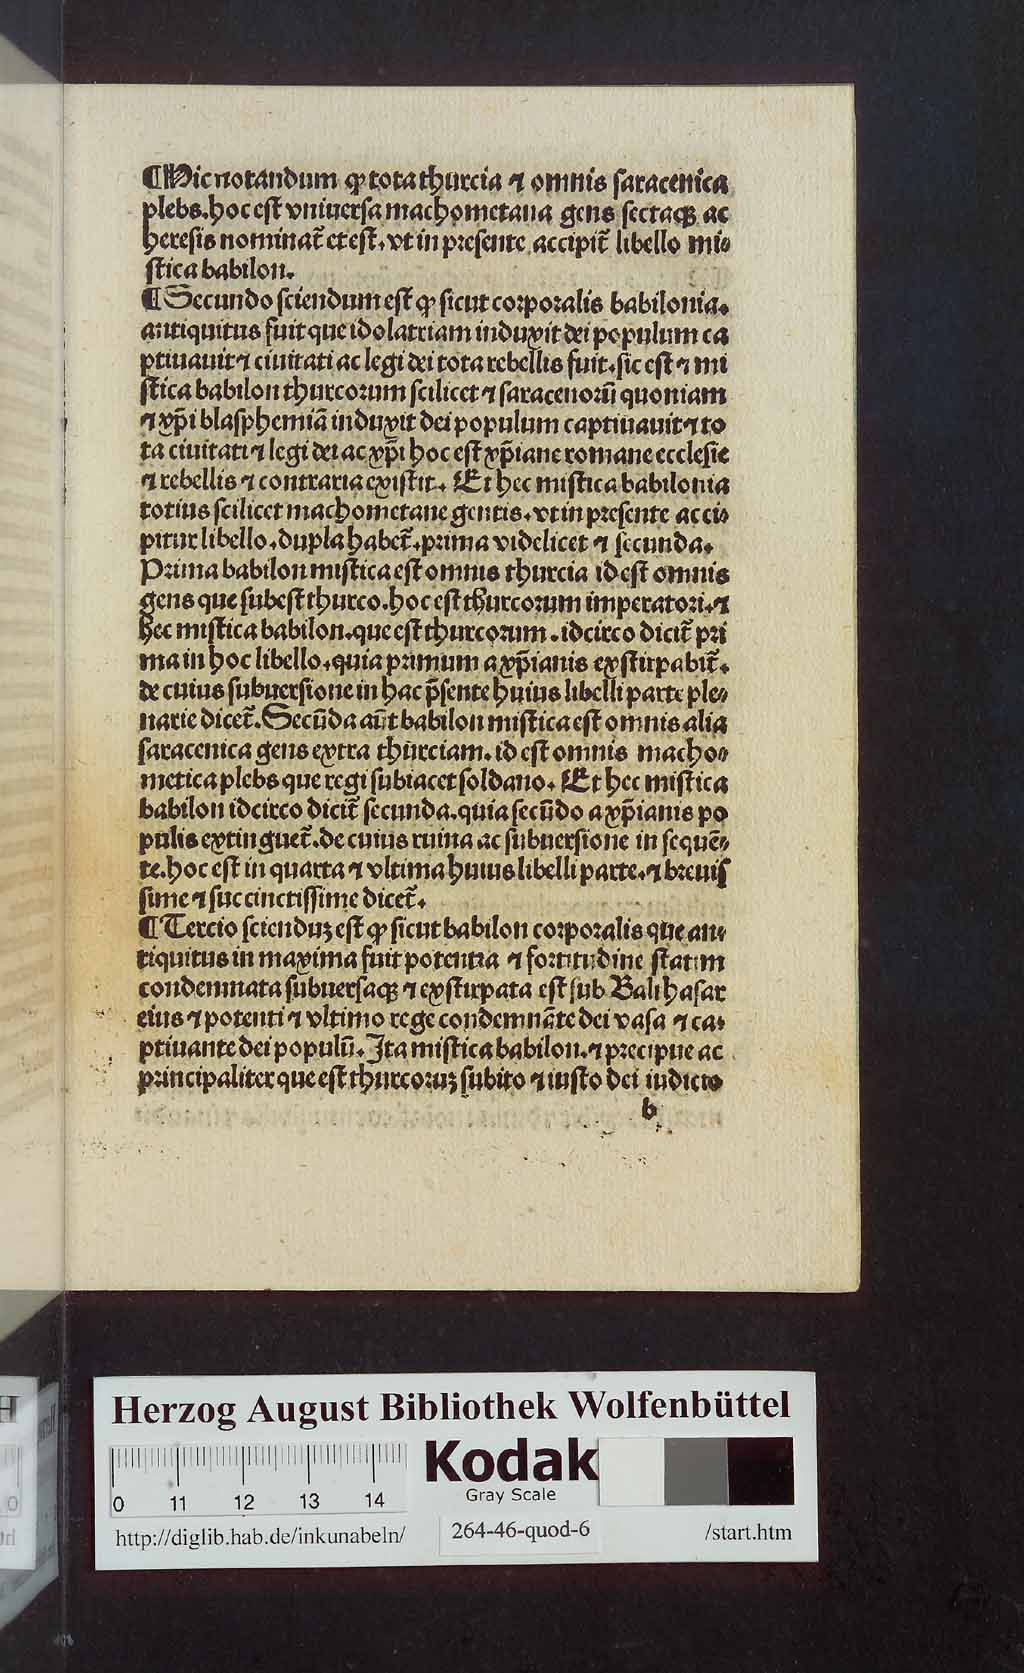 ¶Hic notandum ꝙ tota thurcia ⁊ omnis ſaracenica
plebs.hoc eſt vniuerſa machometana gens ſectaqꝫ ac
hereſis nominat̃ et eſt.vt in preſente accipit̃ libello mi⸗
ſtica babilon.
¶Secundo ſciendum eſt ꝙ ſicut corporalis babilonia.
antiquitus fuit que idolatriam induxit dei populum ca
ptiuauit ⁊ ciuitati ac legi dei tota rebellis fuit.ſic eſt ⁊ mi
ſtica babilon thurcorum ſcilicet ⁊ ſaracenorũ quoniam
⁊ xp̃i blaſphemiã induxit dei populum captiuauit ⁊ to
ta ciuitati ⁊ legi dei ac xp̃i hoc eſt xp̃iane romane eccleſie
⁊ rebellis ⁊ contraria exiſtit. Et hec miſtica babilonia
totius ſcilicet machometane gentis.vt in preſente acci⸗
pitur libello.dupla habet̃.prima videlicet ⁊ ſecunda.
Prima babilon miſtica eſt omnis thurcia id eſt omnis
gens que ſubeſt thurco.hoc eſt thurcorum imperatori.⁊
hec miſtica babilon.que eſt thurcorum.idcirco dicit̃ pri
ma in hoc libello.quia primum a xp̃ianis exſtirpabit̃.
de cuius ſubuerſione in hac p̃ſente huius libelli parte ple⸗
narie dicet̃.Secũda aũt babilon miſtica eſt omnis alia
ſaracenica gens extra thurciam.id eſt omnis macho⸗
metica plebs que regi ſubiacet ſoldano. Et hec miſtica
babilon idcirco dicit̃ ſecunda.quia ſecũdo a xp̃ianis po
pulis extinguet̃.de cuius ruina ac ſubuerſione in ſequẽ⸗
te.hoc eſt in quarta ⁊ vltima huius libelli parte.⁊ breuiſ
ſime ⁊ ſuccinctiſſime dicet̃.
¶Tercio ſcienduꝫ eſt ꝙ ſicut babilon corporalis que an⸗
tiquitus in maxima fuit potentia ⁊ fortitudine ſtatim
condemnata ſubuerſaqꝫ ⁊ exſtirpata eſt ſub Balthaſar
eius ⁊ potenti ⁊ vltimo rege condemnãte dei vaſa ⁊ ca⸗
ptiuante dei populũ.Ita miſtica babilon.⁊ precipue ac
principaliter que eſt thurcoruꝫ ſubito ⁊ iuſto dei iudicio
b
Herzog August Bibliothek Wolfenbüttel
0 11 12 13 14
Kodak
Gray Scale
http://diglib.hab.de/inkunabeln/
264-46-quod-6
/start.htm